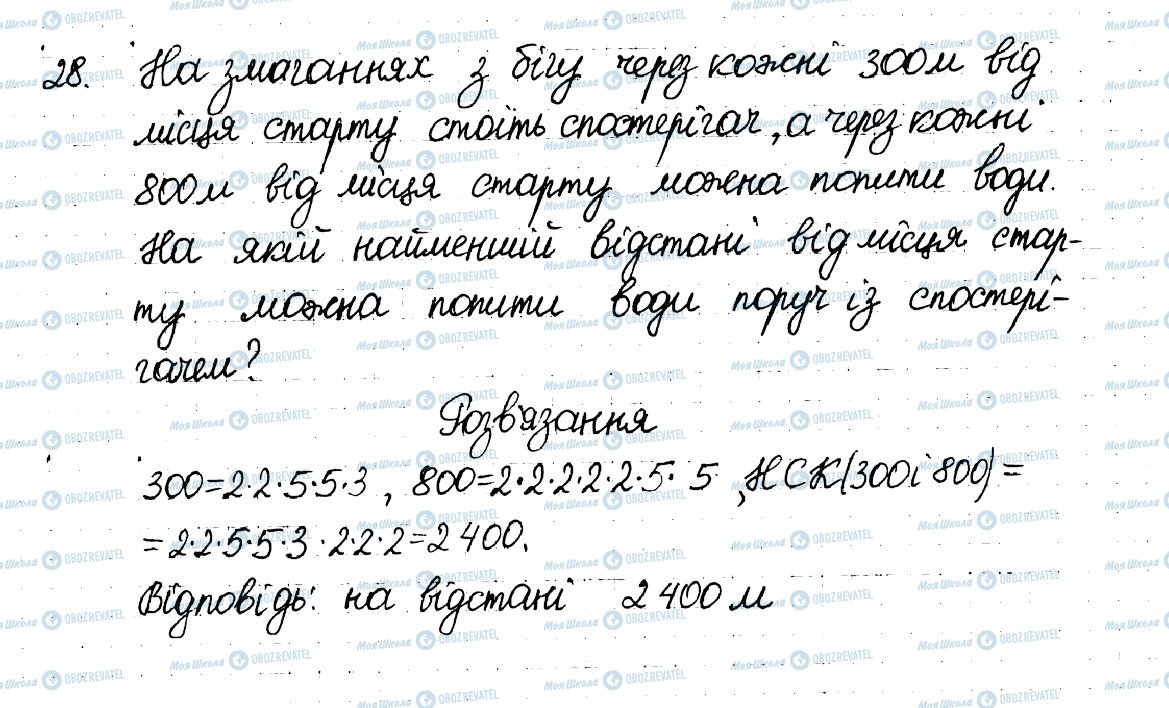 28. На змаганнях з бігу через кожні 300м від
місця старту стоїть спостерігач, а через кожні
800м від місця старту можна попити води.
На якій найменшій відстані від місця стар-
ту можна попити води поруч із спостері-
гачем?
Розв'язання
300=2·2·5·5·3, 800=2·2·2·2·2·5·5, НСК(300і 800)=
=2·2·5·5·3·2·2·2=2400.
Відповідь: на відстані 2400 м